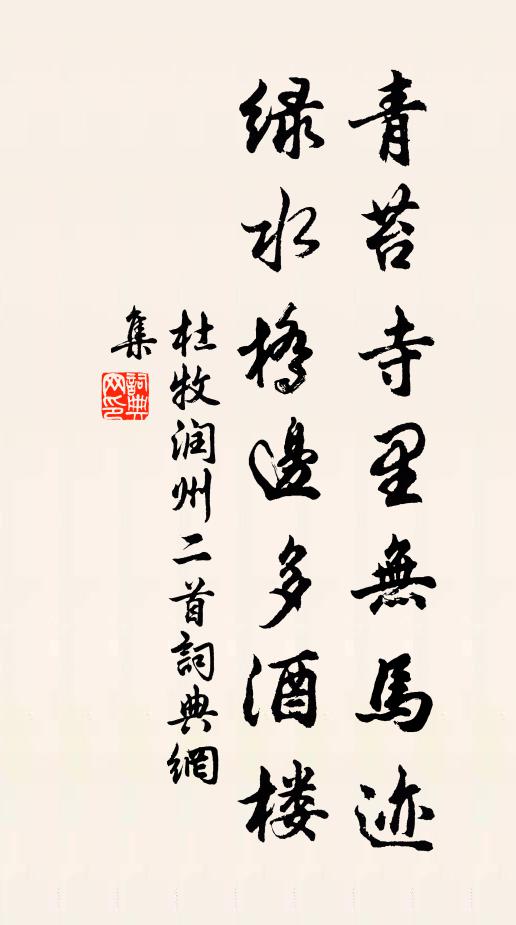 青苔寺里無馬迹
绿水橋邊多酒楼
杜牧润州二首詞典網
集
詞典網印